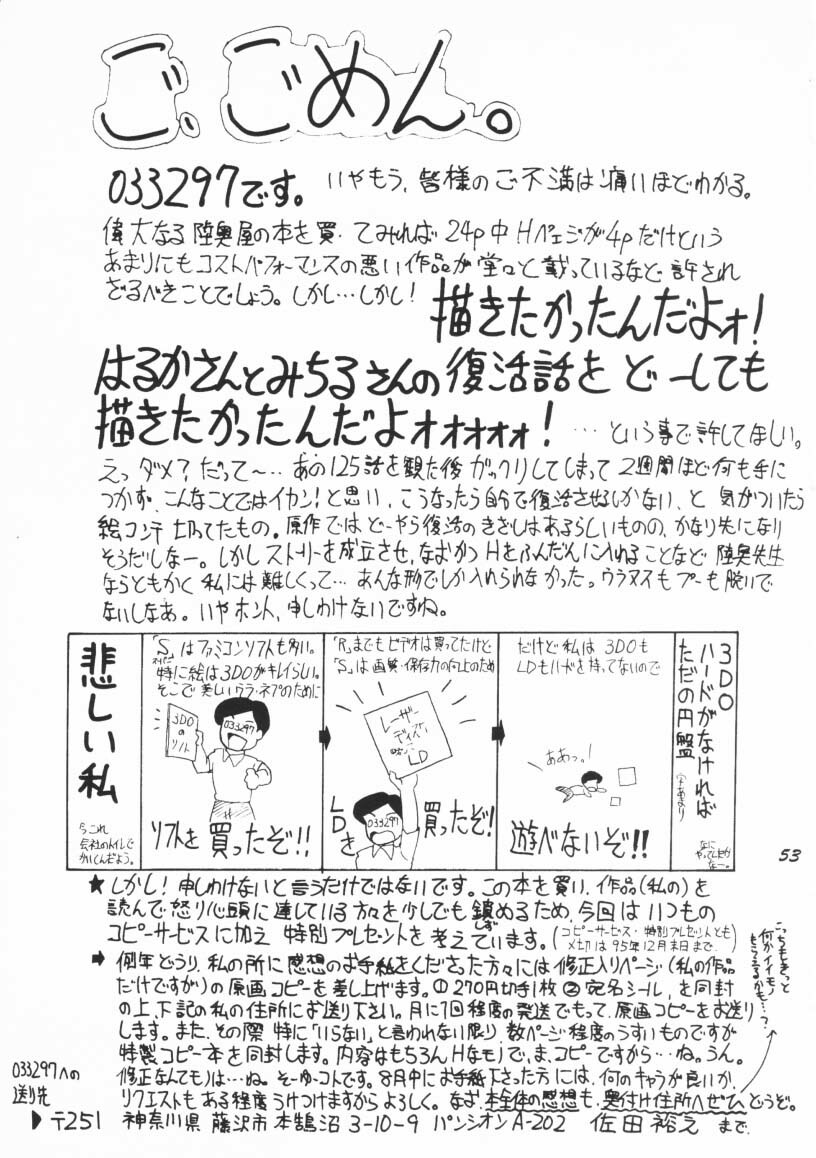 ご、ごめん。
033297です。いやもう、皆様のご不満は痛いほどわかる。
偉大なる陸奥屋の本を買ってみれば24p中Hページが4pだけという
あまりにもコストパフォーマンスの悪い作品が堂々と載っているなど許され
ざるべきことでしょう。しかし…しかし!
描きたかったんだよォ!
はるかさんとみちるさんの復活話をどーしても
描きたかったんだよォォォォォ!…という事で許してほしい。
えっダメ?だって〜…あの125話を観た後ガックリしてしまって2週間ほど何も手に
つかず、こんなことではイカン!と思い、こうなったら自分で復活させるしかない、と気がついたら
絵コンテ切ってたもの。原作ではどーやら復活のきざしはあるらしいものの、かなり先になり
そうだしなー。しかしストーリーを成立させ、なおかつHをふんだんに入れることなど陸奥先生
ならともかく私には難しくって…あんな形でしか入れられなかった。ウラヌスもプーも脱いで
ないしなあ。いやホント、申しわけないですね。
悲しい私
らこれ
会社のトイレで
かいてんだよう。
「S」はファミコンソフトも多い。
特に絵は3DOがキレイらしい。
そこで美しいウラ・ネプのために
3DO
の
ソフト
033297
ソフトを買ったぞ!!
「R」までもビデオは買ってたけど
「S」は画質・保存力の向上のため
レーザー
ディスク
LD
033297
LDを買ったぞ!
だけど私は3DOも
LDもハードを持ってないので
ああっ!
遊べないぞ!!
3DO
ハードがなければ
ただの円盤
(字あまり)
なに
やってんだか
なー。
53
★しかし!申しわけないと言うだけではないです。この本を買い、作品(私の)を
読んで怒り心頭に達している方々を少しでも鎮めるため、今回はいつもの
しず
コピーサービスに加え特別プレゼントを考えています。(コピーサービス・特別プレゼントとも
〆切は95年12月末日まで)
➡例年どうり、私の所に感想のお手紙をくださった方々には修正入りページ(私の作品
だけですが)の原画コピーを差し上げます。①270円切手1枚②宛名シール、を同封
の上、下記の私の住所にお送り下さい。月に1回程度の発送でもって、原画コピーをお送り
します。また、その際特に「いらない」と言われない限り、数ページ程度のうすいものですが
特製コピー本を同封します。内容はもちろんHなモノで、ま、コピーですから…ね。うん。
修正なんてものは…ね。そーゆーコトです。8月中にお手紙下さった方には、何のキャラが良いか、
リクエストもある程度うけつけますからよろしく。なお、本全体の感想も、奥付け住所へぜひどうぞ。
こっちもきっと
何かイイモノ
もらえるかも…?
033297への
送り先
▶〒251 神奈川県 藤沢市 本鵠沼 3-10-9 パンシオンA-202 佐田裕之 まで